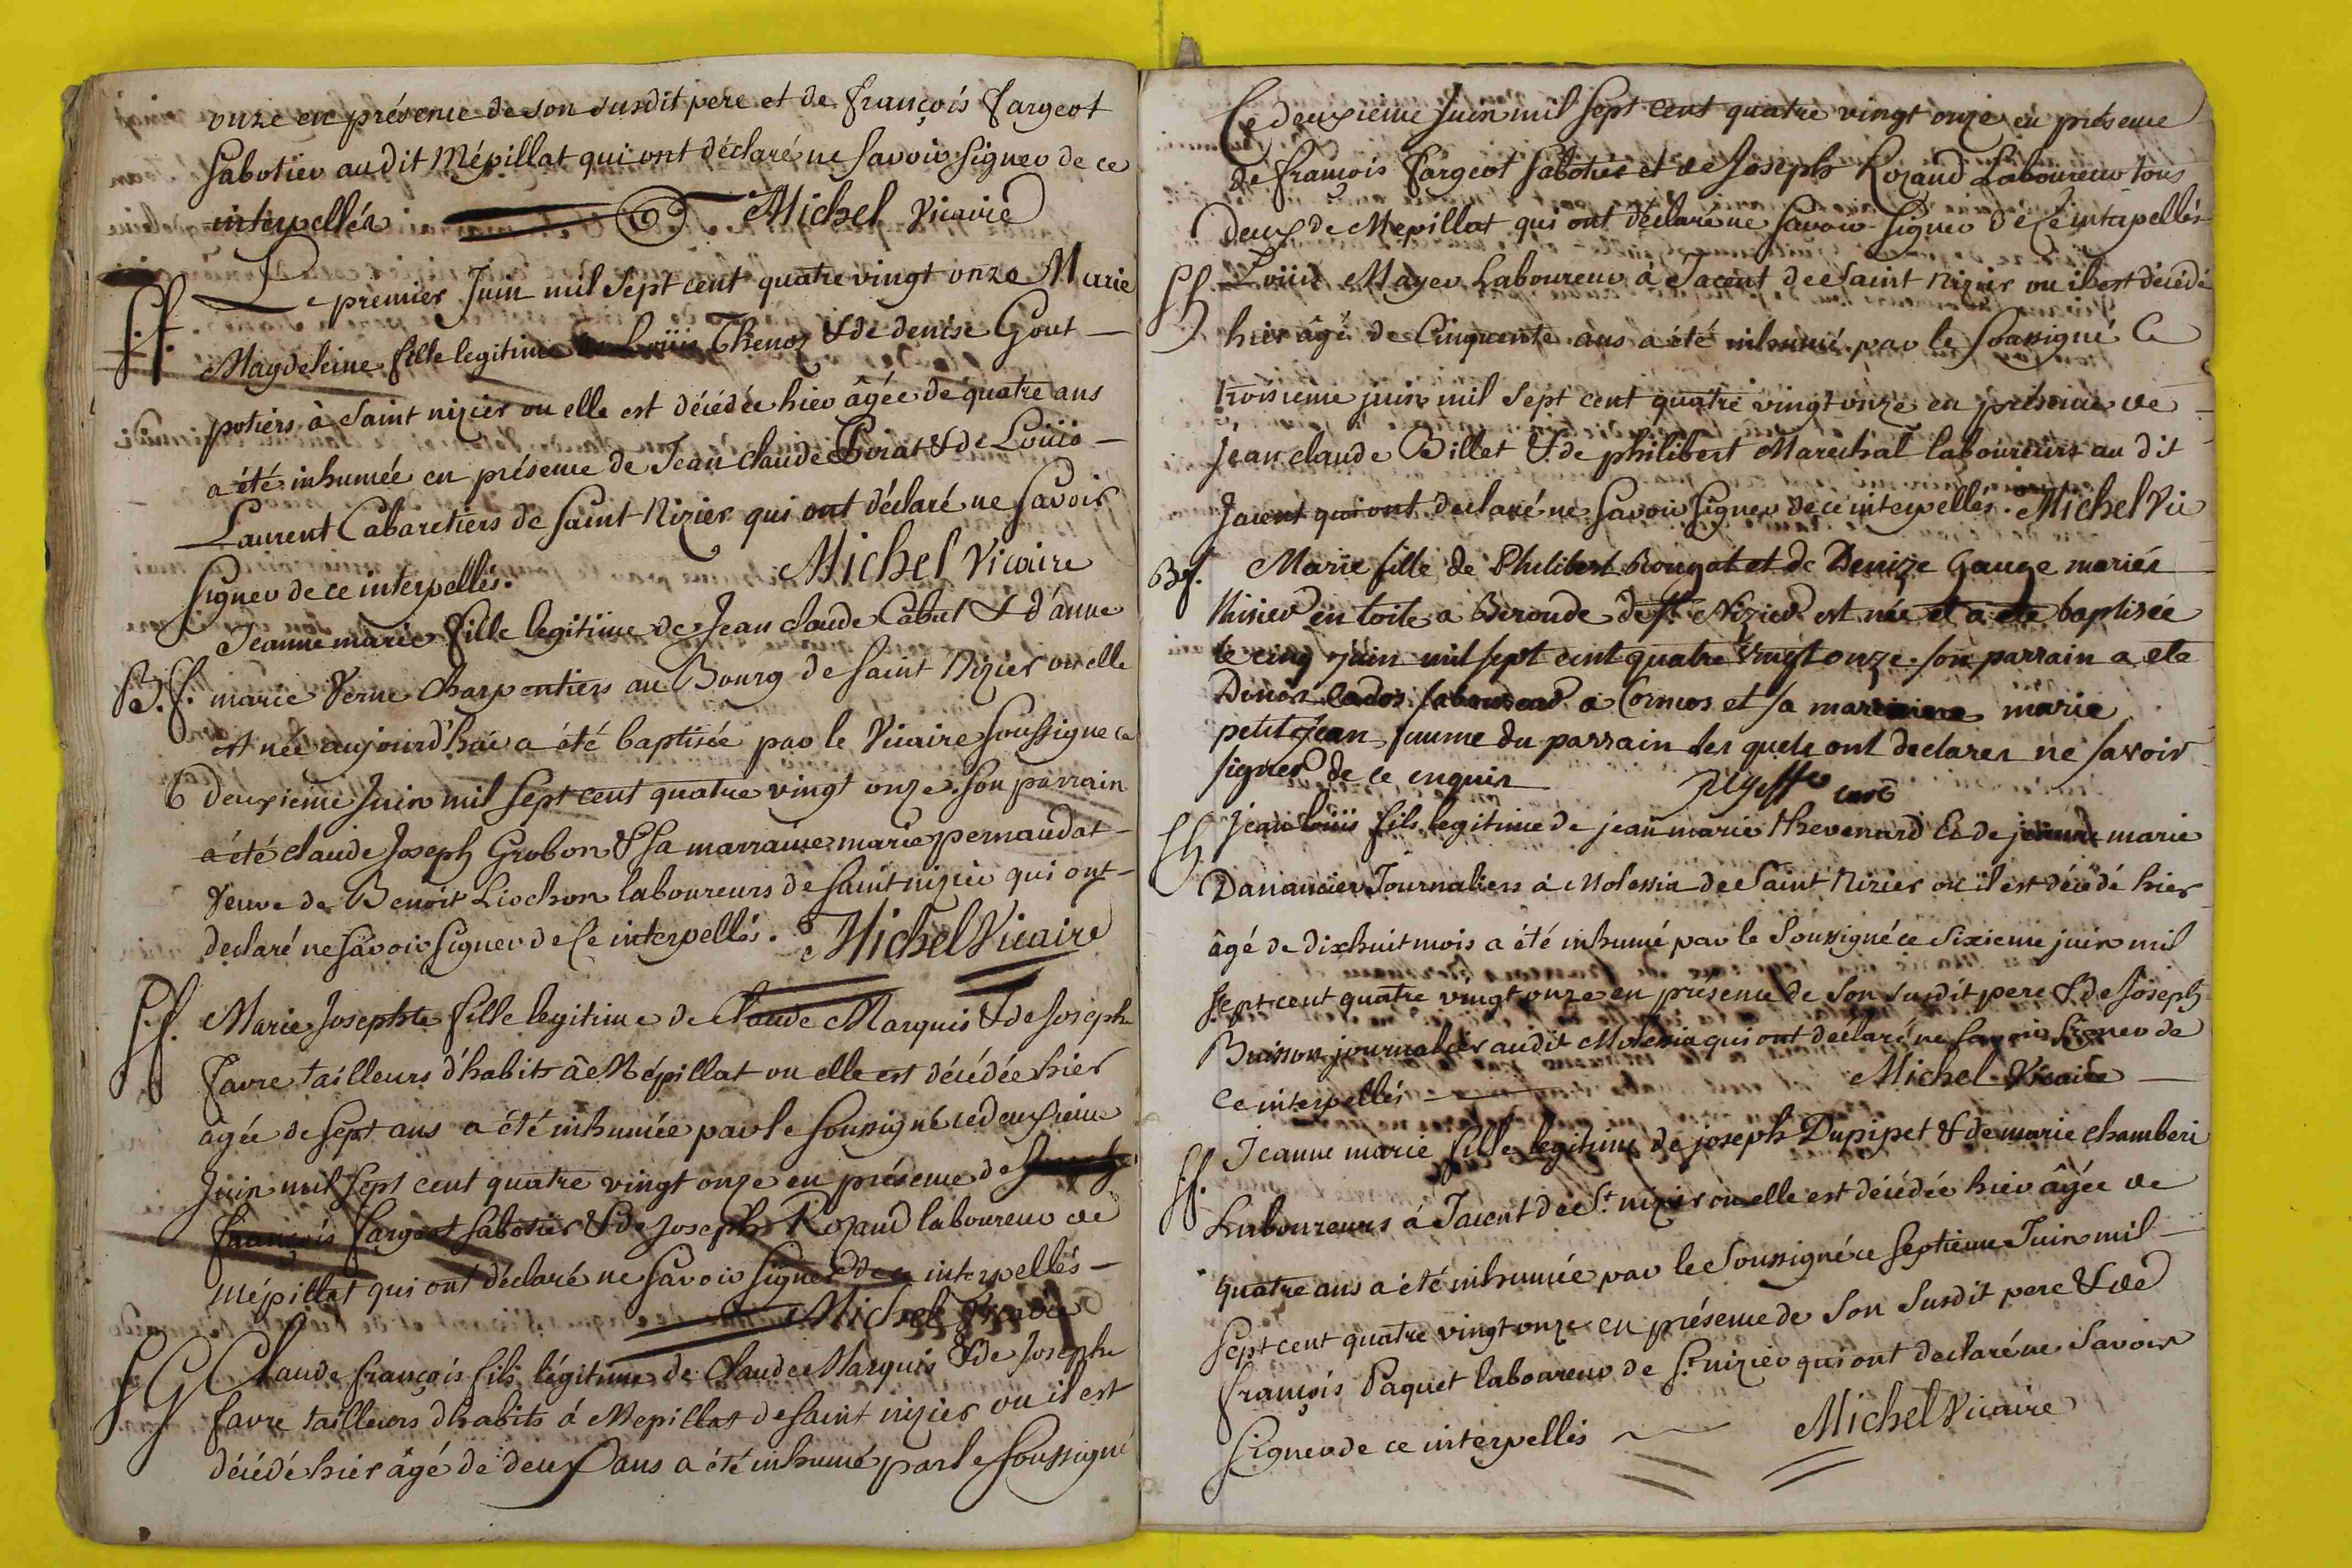 onze en présence de son susdit pere et de françois fargeot
Sabotier audit Mépillat qui ont déclaré ne savoir signer de ce
interpellés Michel Vicaire
S.f. Le premier Juin mil Sept cent quatre vingt onze Marie
Magdeleine fille legitime de Loüis Thenoz & de denise Gout
potiers à Saint nizier ou elle est décédée hier âgée de quatre ans
a été inhumée en présence de Jean claude & de Loüis
Laurent Cabaretiers de Saint Nizier qui ont déclaré ne savoir
Signer de ce interpellés. Michel Vicaire
Jeanne marie fille legitime de Jean claude Cabut & d'anne
B.f. marie Verne Charpentiers au Bourg de Saint Nizier ou elle
est née aujourd'hui a été baptisée par le Vicaire Soussigne ce
6 deuxieme Juin mil Sept cent quatre vingt onze. Son parrain
a été claude Joseph Grobon & Sa marraine marie pernaudat
veuve de Benoit Liochon laboureurs de Saint nizier qui ont
declaré ne Savoir Signer de Ce interpellés. Michel Vicaire
S.f. Marie Josephte fille legitime de Claude Marquis & de Josephe
favre tailleurs d'habits à Mépillat ou elle est décédée hier
agée de Sept ans a été inhumée par le Soussigné ce deuxieme
Juin mil Sept cent quatre vingt onze en présence de
françois fargeot Sabotier & de Joseph Rozand laboureur de
Mépillat qui ont déclaré ne Savoir Signer de ce interpellés
Michel Vicaire
S G Claude françois fils légitime de Claude Marquis & de Josephe
favre tailleurs d'habits à Mepillat de saint nizier ou il est
décédé hier âgé de deux ans a été inhumé par le Soussigné
Ce deuxieme Juin mil Sept cent quatre vingt onze en présence
de françois fargeot Sabotier et de Joseph Rozand Laboureur tous
deux de Mepillat qui ont déclaré ne Savoir Signer de Ce interpellés
Sh Loüis Mayer Laboureur à Jacent de Saint Nizier ou il est décédé
hier âgé de Cinquante ans a été inhumé par le Soussigné Ce
troisieme juin mil Sept cent quatre vingt onze en présence de
Jean claude Billet & de philibert Marechal laboureurs au dit
Jacent qui ont declaré ne Savoir Signer de ce interpellés. Michel Vic
Bf. Marie fille de Philibert Rougat et de Denize Gauge mariés
tissier en toile a Beronde de st Nizier est née et a ete baptisée
le cinq juin mil sept cent quatre vingt onze. son parrain a ete
Denis laboureur a Cormos et sa marraine marie
petit jean femme du parrain les quels ont declarer ne savoir
signer de ce enquis curé
Sh Jean loüis fils legitime de jean marie thevenard & de jeanne marie
Dananciier Journaliers à Molessia de Saint Nizier ou il est décédé hier
âgé de dixhuit mois a été inhumé par le Soussigné ce Sixieme juin mil
Sept cent quatre vingt onze en présence de Son susdit pere & de Joseph
Buisson journalier audit Molessia qui ont declaré ne savoir Signer de
ce interpellés Michel Vicaire
S.f. Jeanne marie fille legitime de joseph Dupipet & de marie chamberi
Laboureurs à Jacent de St. nizier ou elle est décédée hier âgée de
quatre ans a été inhumée par le Soussigné ce Septieme Juin mil
Sept cent quatre vingt onze en présence de Son Susdit pere & de
françois Paquet laboureur de St. nizier qui ont declaré ne Savoir
Signer de ce interpellés Michel Vicaire